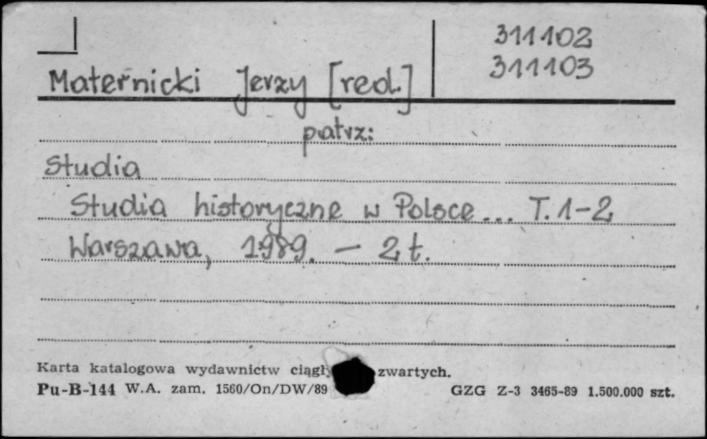 311102
311103
Maternicki Jerzy [red.]
patrz:
Studia
Studia historyczne w Polsce... T. 1-2
Warszawa, 1989. - 2 t.
Karta katalogowa wydawnictw zwartych.
Pu-B-144 W.A. zam. 1560/On/DW/89 GZG Z-3 3465-89 1.500.000 szt.